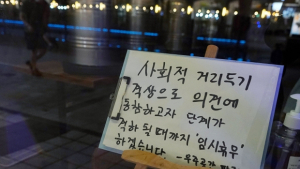 사회적 거리두기
격상으로 의견에
통합하고자 단계가
격하 될 때까지 '임시휴무'
하겠습니다.